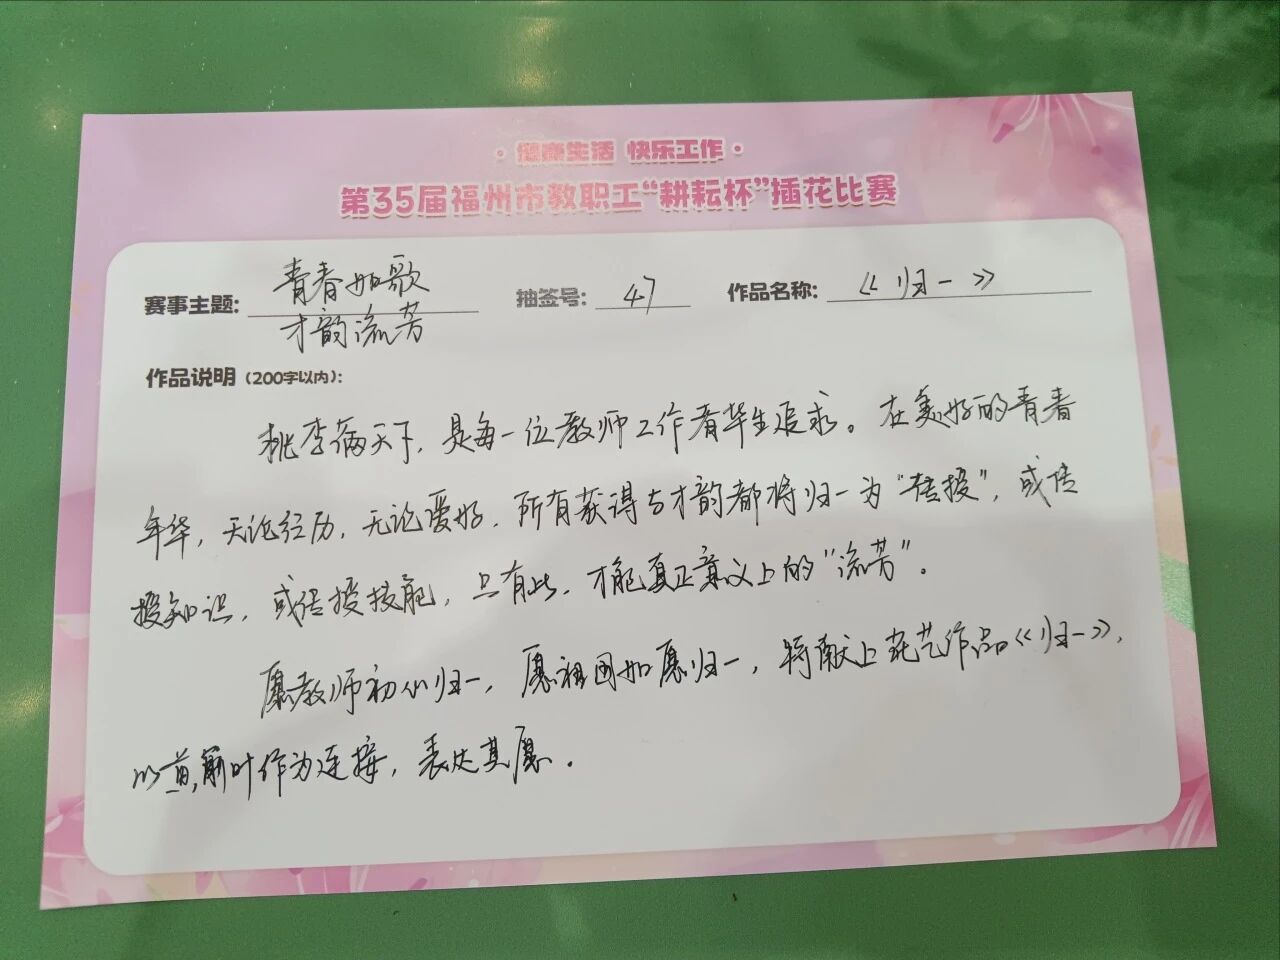 ·健康生活 快乐工作·
第35届福州市教职工“耕耘杯”插花比赛
赛事主题: 青春如歌 抽签号: 47 作品名称: 《归一》
才韵流芳
作品说明(200字以内):
桃李满天下，是每一位教师工作者毕生追求。在美好的青春
年华，无论经历，无论爱好，所有获得与才韵都将归一为“传授”，或传
授知识，或传授技能，只有此，才能真正意义上的“流芳”。
愿教师初心归一，愿祖国如愿归一，特献上花艺作品《归一》，
以剪叶作为连接，表达其愿。